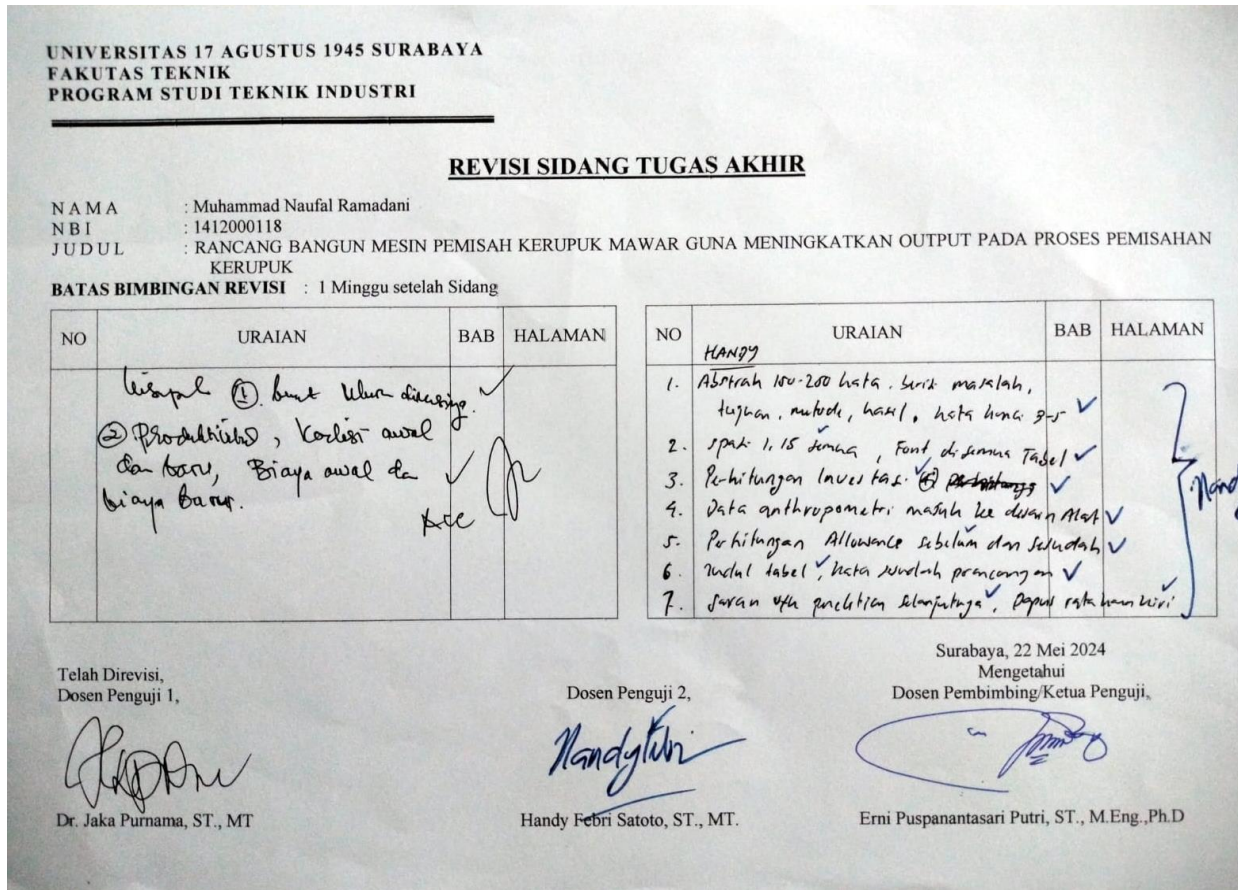 UNIVERSITAS 17 AGUSTUS 1945 SURABAYA
FAKUTAS TEKNIK
PROGRAM STUDI TEKNIK INDUSTRI
REVISI SIDANG TUGAS AKHIR
N A M A : Muhammad Naufal Ramadani
N B I : 1412000118
J U D U L : RANCANG BANGUN MESIN PEMISAH KERUPUK MAWAR GUNA MENINGKATKAN OUTPUT PADA PROSES PEMISAHAN
KERUPUK
BATAS BIMBINGAN REVISI : 1 Minggu setelah Sidang
NO URAIAN BAB HALAMAN
①.
② Produktivitas, Kondisi awal
dan baru, Biaya awal dan
biaya baru.
Acc
NO URAIAN BAB HALAMAN
HANDY
1. Abstrak 150-200 kata. berisi masalah,
tujuan, metode, hasil, kata kunci 3-5
2. spasi 1,15 semua, Font disemua Tabel
3. Perhitungan Investasi
4. Data anthropometri masuk ke desain Alat
5. Perhitungan Allowance sebelum dan sesudah
6. Judul tabel, kata
7. Saran utk penelitian selanjutnya, Dapus rata kanan kiri
Handy
Surabaya, 22 Mei 2024
Telah Direvisi,
Mengetahui
Dosen Penguji 1,
Dosen Penguji 2,
Dosen Pembimbing/Ketua Penguji,
Handy Febri
Dr. Jaka Purnama, ST., MT
Handy Febri Satoto, ST., MT.
Erni Puspanantasari Putri, ST., M.Eng.,Ph.D